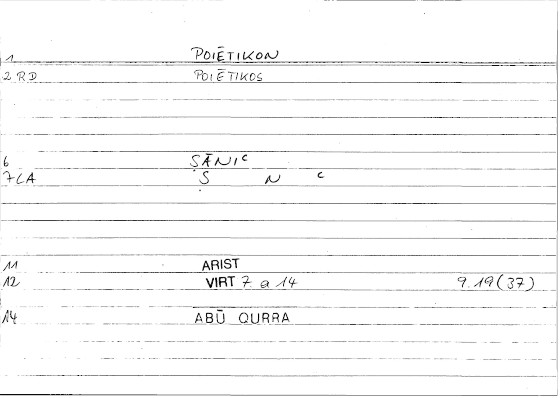 1 POIĒTIKON
2 RD POIĒTIKOS
6 ṢĀNIᶜ
7 LA Ṣ N ᶜ
11 ARIST
12 VIRT 7 a 14 9.19(37)
14 ABŪ QURRA